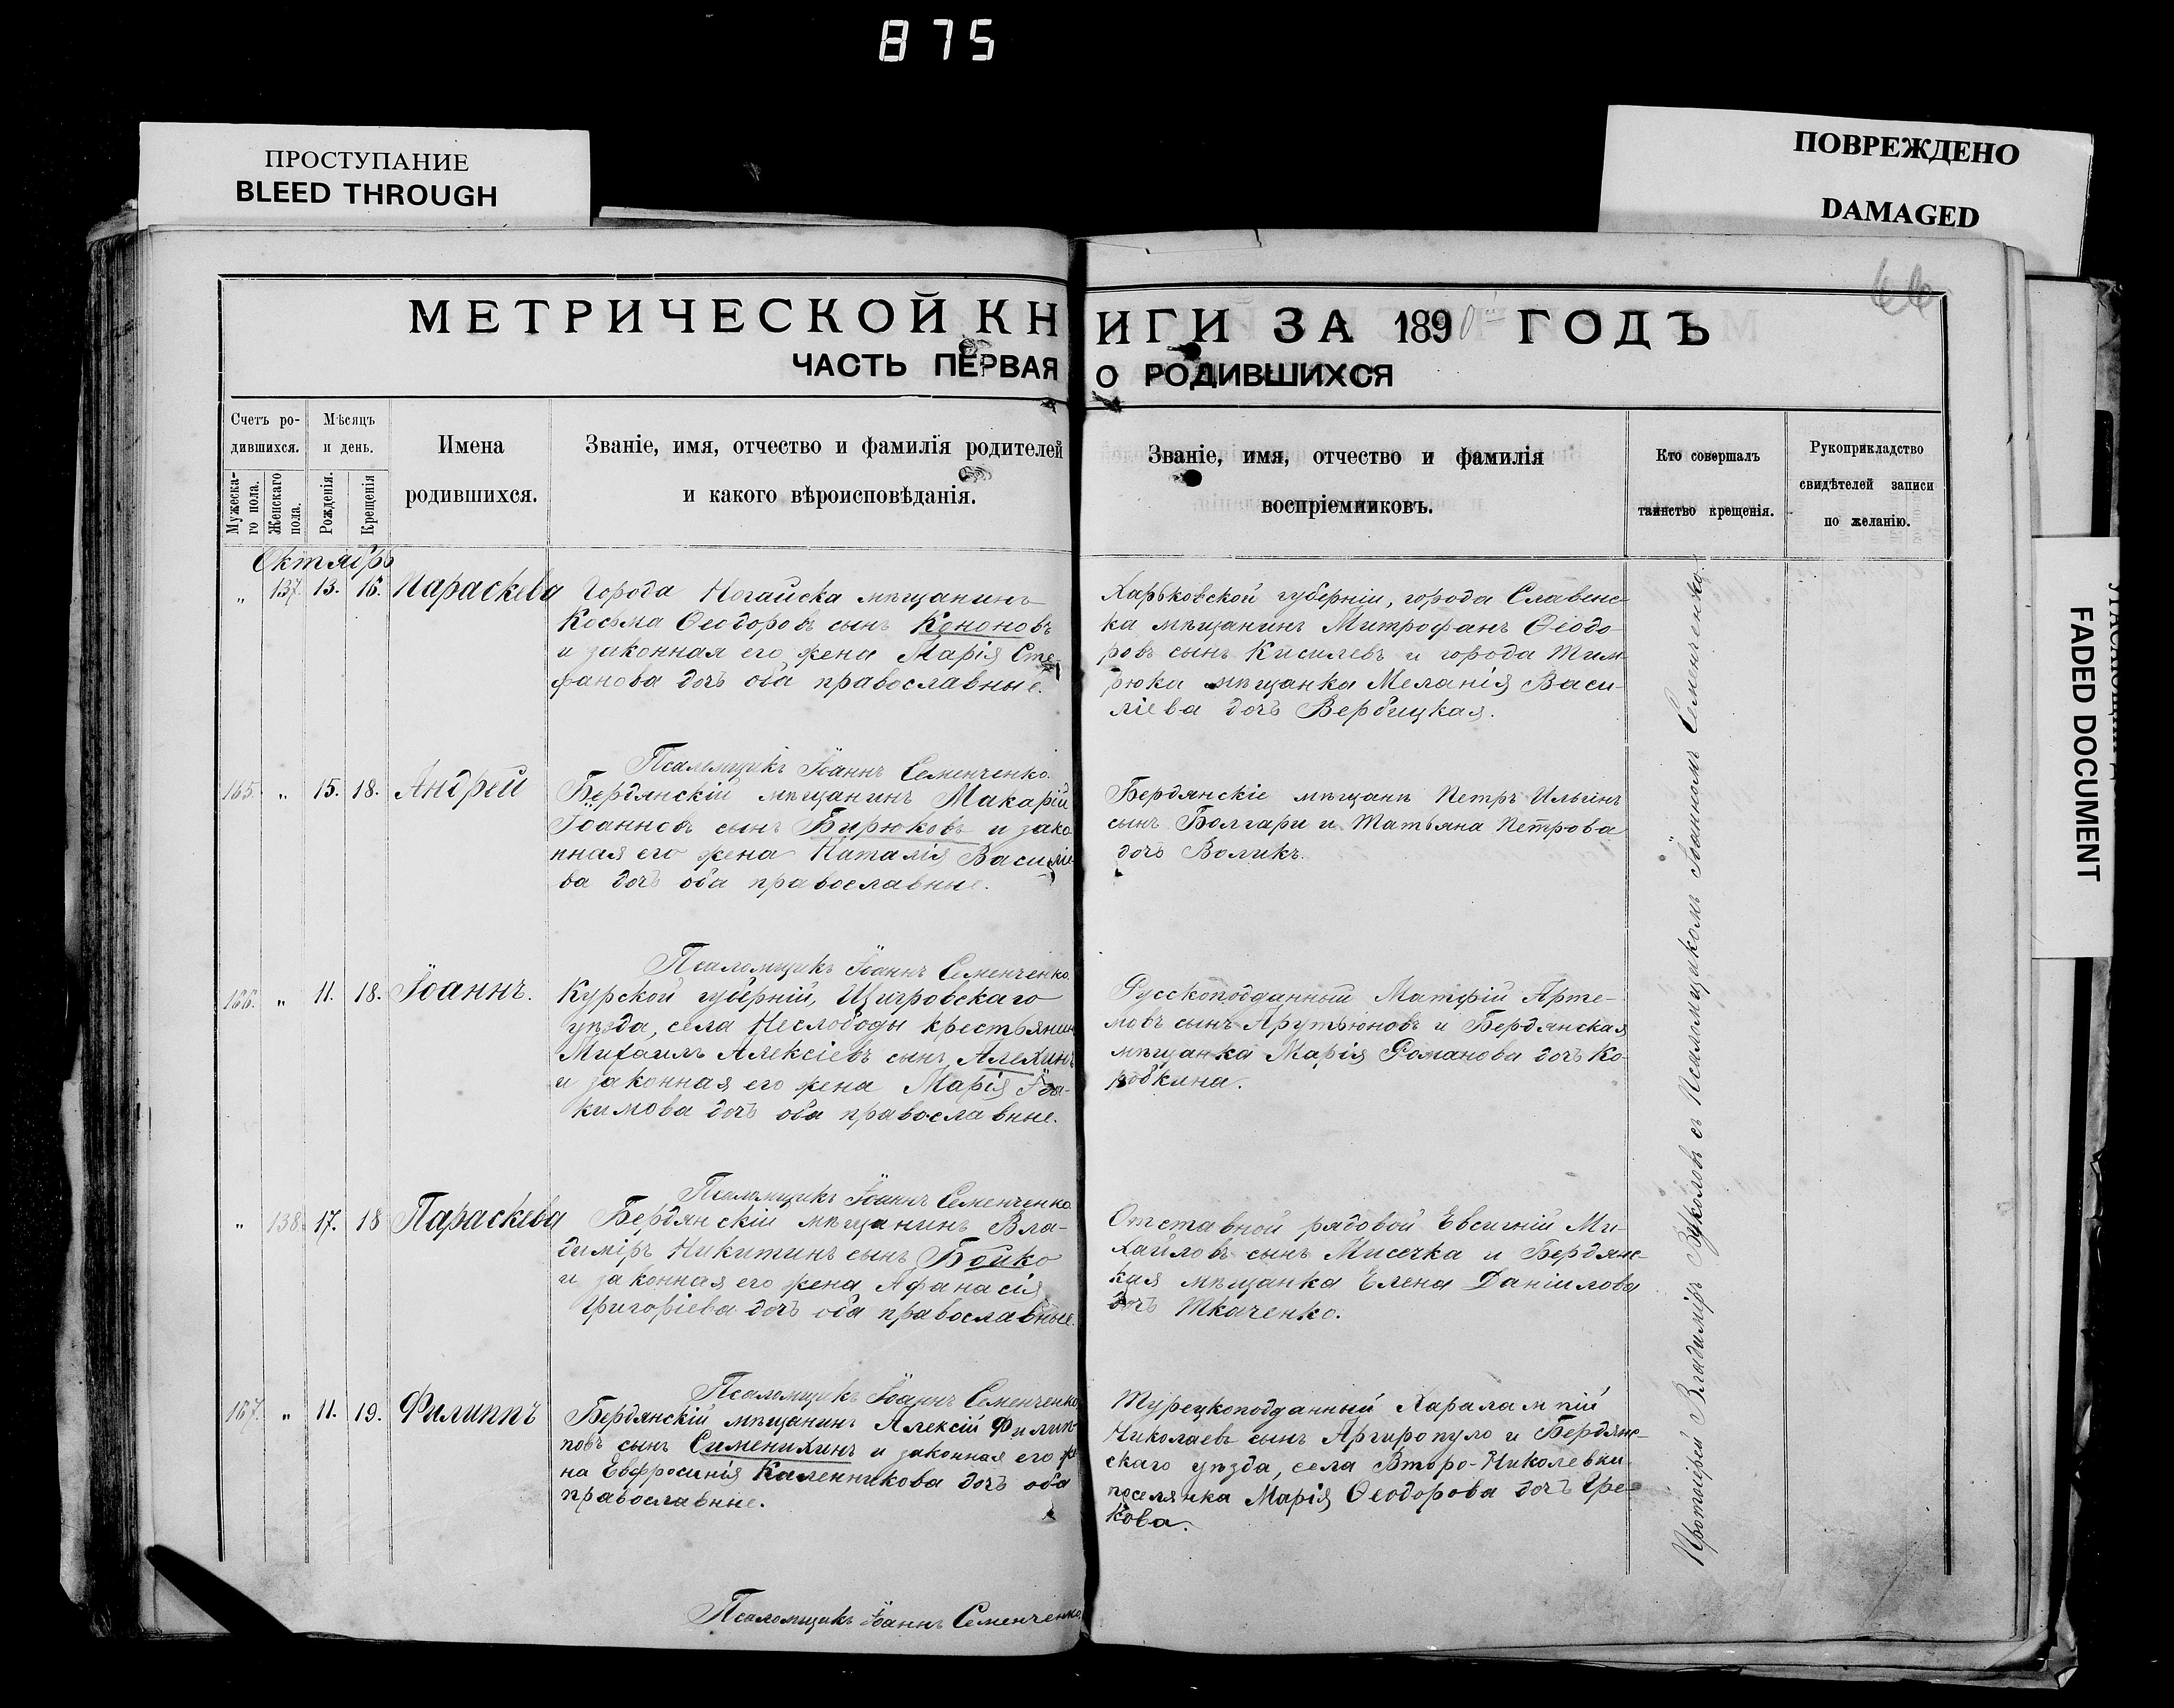 875
ПРОСТУПАНИЕ
BLEED THROUGH
ПОВРЕЖДЕНО
DAMAGED
FADED DOCUMENT
66
МЕТРИЧЕСКОЙ КНИГИ ЗА 1890 ГОДЪ
ЧАСТЬ ПЕРВАЯ О РОДИВШИХСЯ
Счетъ ро-
дившихся.
Мужеска-
го пола.
Женскаго
пола.
Мѣсяцъ
и день.
Рожденія.
Крещенія
Имена
родившихся.
Званіе, имя, отчество и фамилія родителей
и какого вѣроисповѣданія.
Званіе, имя, отчество и фамилія
воспріемниковъ.
Кто совершалъ
таинство крещенія.
Рукоприкладство
свидѣтелей записи
по желанію.
Октябрь
„ 137. 13. 16. Параскева
Города Ногайска мѣщанинъ
Косьма Ѳеодоровъ сынъ Кононовъ
и законная его жена Марія Сте-
фанова дочь оба православные.
Харьковской губерніи, города Славенс-
ка мѣщанинъ Митрофанъ Ѳеодо-
ровъ сынъ Киселевъ и города Тем-
рюка мѣщанка Меланія Васи-
ліева дочь Вербицкая.
Псаломщикъ Іоаннъ Семенченко.
165. „ 15. 18. Андрей
Бердянскій мѣщанинъ Макарій
Іоанновъ сынъ Бирюковъ и зако-
нная его жена Наталія Василіе-
ва дочь оба православные.
Бердянскіе мѣщане Петръ Ильинъ
сынъ Болгари и Татьяна Петрова
дочь Воликъ.
Псаломщикъ Іоаннъ Семенченко.
166. „ 11. 18. Іоаннъ.
Курской губерній, Щигровскаго
уѣзда, села Неслободы крестьянинъ
Михаилъ Алексіевъ сынъ Алехинъ
и законная его жена Марія Іоа-
кимова дочь оба православные.
Русскоподданный Матфій Арте-
мовъ сынъ Арутьюновъ и Бердянская
мѣщанка Марія Романова дочь Ко-
робкина.
Псаломщикъ Іоаннъ Семенченко
„ 138. 17. 18 Параскева
Бердянскій мѣщанинъ Вла-
диміръ Никитинъ сынъ Бойко
и законная его жена Афанасія
Григоріева дочь оба православные.
Отставной рядовой Евсигній Ми-
хайловъ сынъ Мисечка и Бердянс-
кая мѣщанка Елена Даніилова
дочь Ткаченко.
Псаломщикъ Іоаннъ Семенченко
167. „ 11. 19. Филиппъ
Бердянскій мѣщанинъ Алексій Филип-
повъ сынъ Сименихинъ и законная его же-
на Евфросинія Каленникова дочь оба
православные.
Турецкоподданный Харалампій
Николаевъ сынъ Аргиропуло и Бердянс-
скаго уѣзда, села Второ-Николевки
поселянка Марія Ѳеодорова дочь Гре-
кова.
Псаломщикъ Іоаннъ Семенченко
Протоіерей Владиміръ Вуколовъ съ Псаломщикомъ Іоанномъ Семенченко.